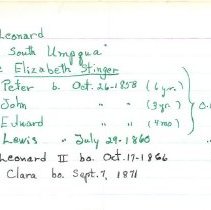 Leonard
"South Umpqua"
Elizabeth Stinger
Peter b. Oct. 26-1858 (6 yr.)
John " (3 yr.)
Edward " (7 mo)
Lewis " July 29-1860
Leonard II bo. Oct. 17-1866
Clara bo. Sept. 7, 1871